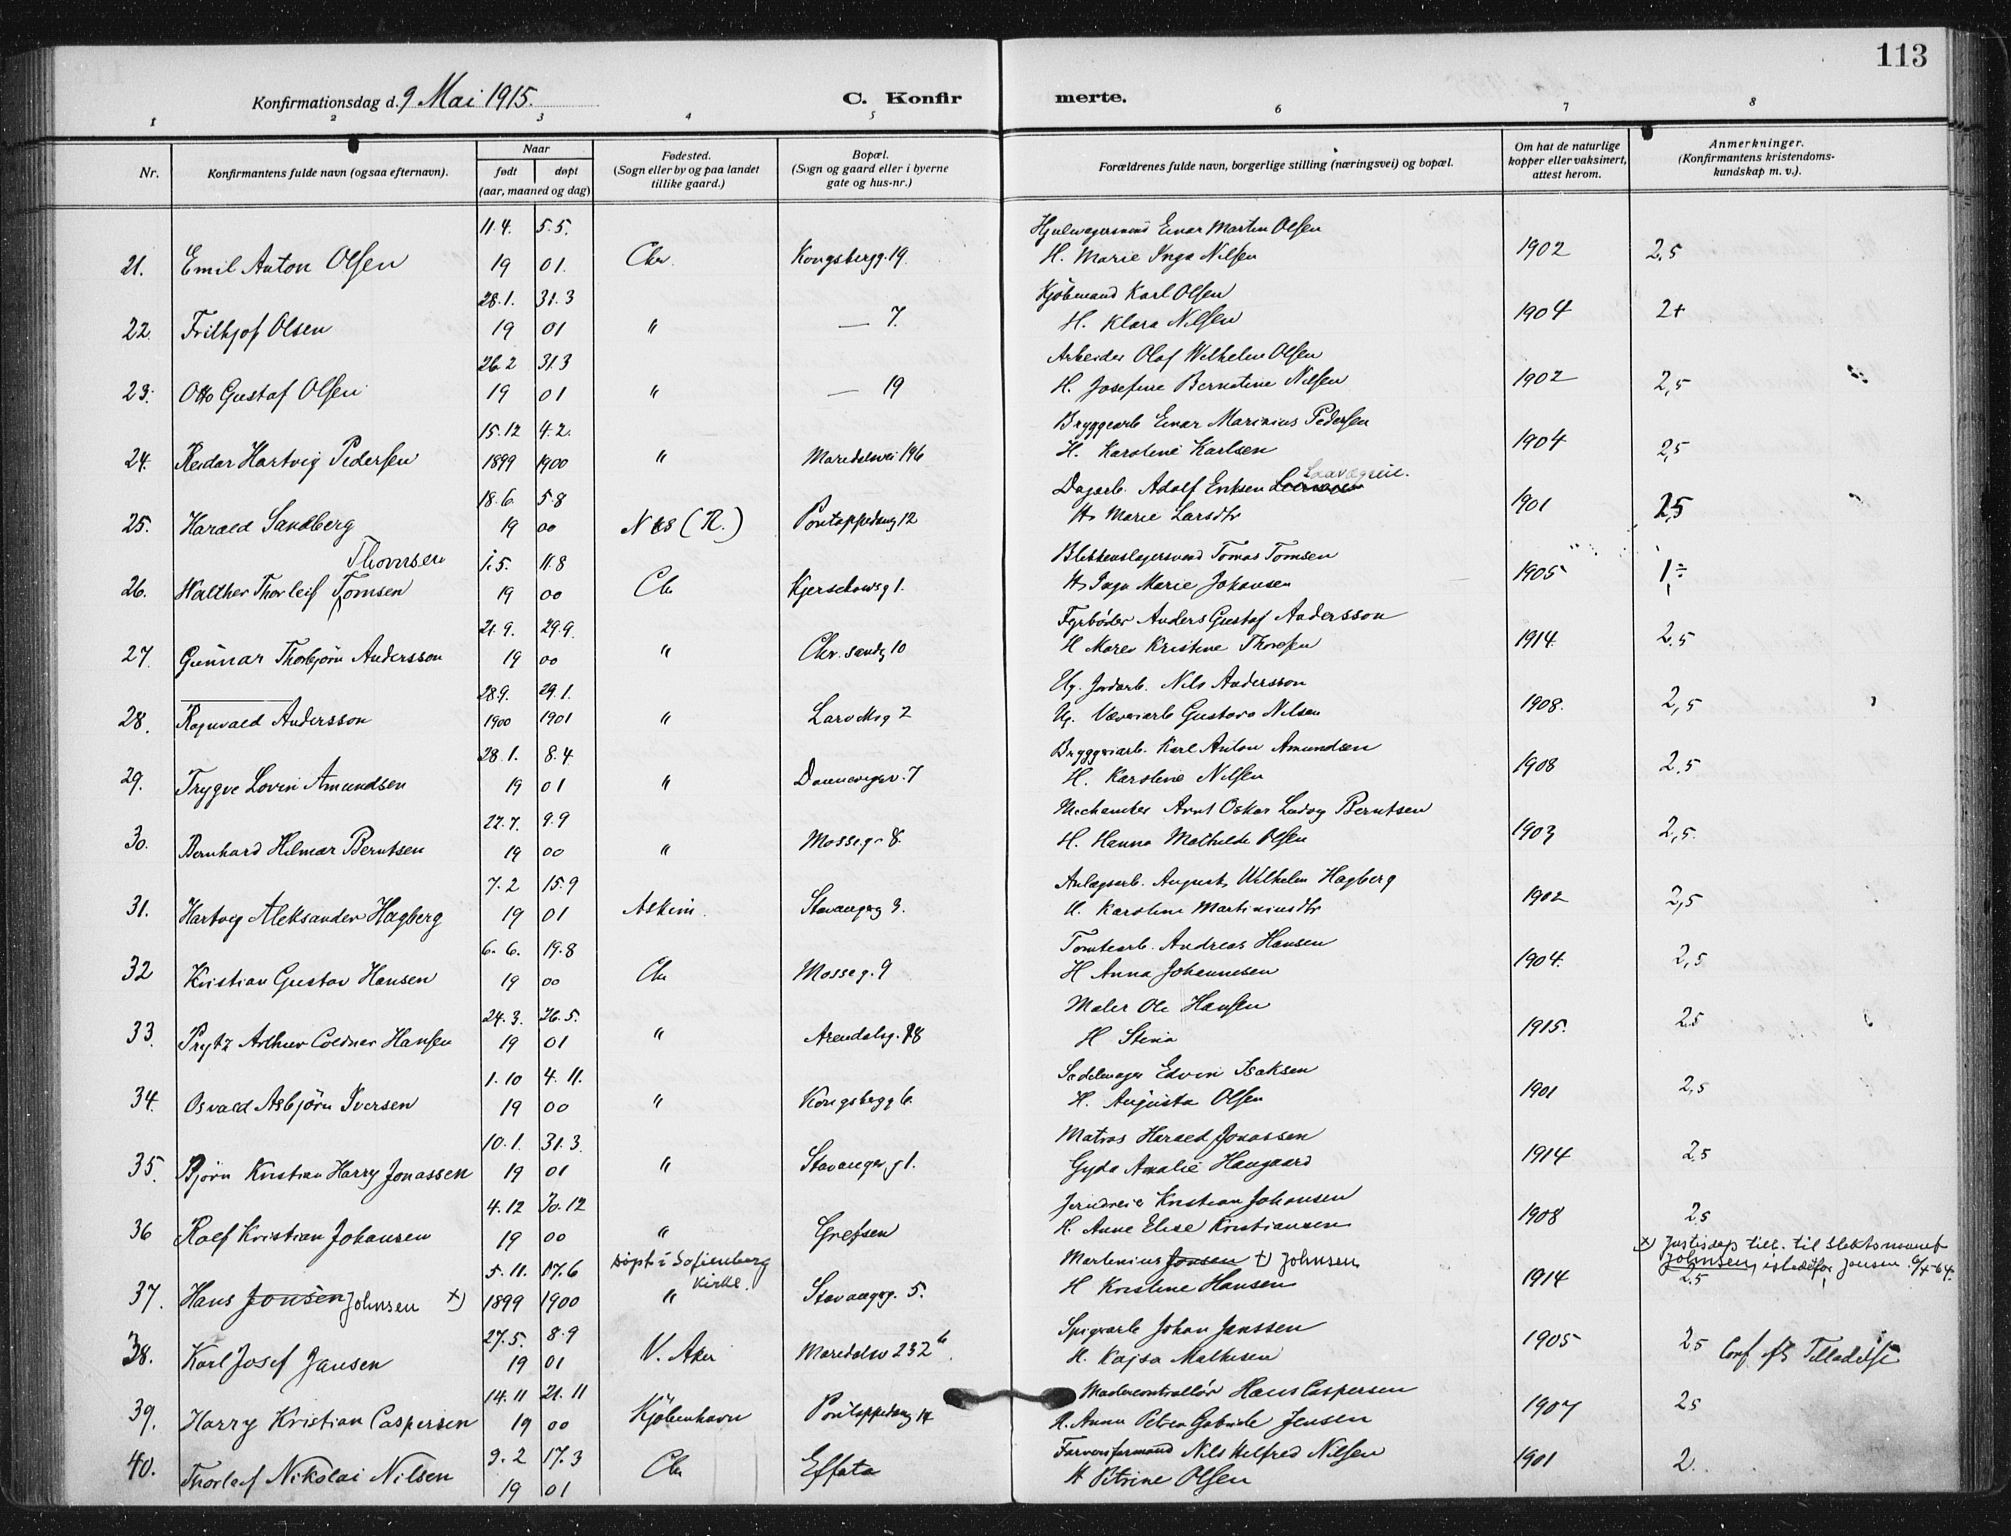 113
Konfirmationsdag d. 9 Mai 1915. C. Konfirmerte.
1 2 3 4 5 6 7 8
Nr. Konfirmantens fulde navn (ogsaa efternavn). Naar født døpt (aar, maaned og dag) Fødested. (Sogn eller by og paa landet tillike gaard.) Bopæl. (Sogn og gaard eller i byerne gate og hus-nr.) Forældrenes fulde navn, borgerlige stilling (næringsvei) og bopæl. Om hat de naturlige kopper eller vaksinert, attest herom. Anmerkninger. (Konfirmantens kristendoms-kundskap m. v.).
11.4. 5.5. Einar Martin Olsen
21. Emil Anton Olsen 19 01. Chr. Kongsbergg. 19. H. Marie Inga Nilsen 1902 2,5
28.1. 31.3 Kjøbmand Karl Olsen
22. Frithjof Olsen 19 01 " — 7. H. Klara Nilsen 1904 2+
26.2 31.3 Arbeider Olaf Wilhelm Olsen
23. Otto Gustaf Olsen 19 01 " — 19 H. Josefine Berntine Nilsen 1902 2,5
15.12 4.2. Bryggearb. Einar Marinius Pedersen
24. Reidar Hartvig Pedersen 1899 1900 " Maridalsvei 196 H. Karoline Karlsen 1904 2,5
18.6. 5.8 Dagarb. Adolf Eriksen
25. Harald Sandberg 19 00 Nes (R.) 12 H. Marie Larsdtr 1901 2,5
Thomsen 1.5. 11.8 Blikkenslagersvend Tomas Tomsen
26. Walther Thorleif Tomsen 19 00 Chr Kjerschowsg 1. H. Inga Marie Johansen 1905 1÷
21.9. 29.9. Fyrbøder Anders Gustaf Andersson
27. Gunnar Thorbjørn Andersson 19 00 " Chr.sandg 10 H Maren Kristine Thoresen 1914. 2,5
28.9. 29.1. Ug. Jordarb. Nils Andersson
28. Ragnvald Andersson 1900 1901 " Larviksg 2 Ug. Væveriarb Gustava Nilsen 1908. 2,5
28.1. 8.4. Bryggeriarb. Karl Anton Amundsen
29. Trygve Lovin Amundsen 19 01 " Dannevigsv. 7 H. Karoline Nilsen 1908 2,5
22.7. 9.9 Mechaniker Arnt Oskar Ludvig Berntsen
30. Bernhard Hilmar Berntsen 19 00 " Mosseg. 8. H. Hanna Mathilde Olsen 1903 2,5.
7.2 15.9 Anlægsarb. August Wilhelm Hagberg
31. Hartvig Aleksander Hagberg 19 01 Askim. Stavangerg 3. H. Karoline Martiniusdtr 1902 2,5
6.6. 19.8 Tomtearb. Andreas Hansen
32 Kristian Gustav Hansen 19 00 Chr Mosseg. 9 H Anna Johannesen 1904. 2,5
24.3. 26.5. Maler Ole Hansen
33. Prytz Arthur Hansen 19 01 " Arendalsg. 18 H Stina 1915. 2,5
1.10 4.11. Sadelmager Edvin Isaksen
34. Osvald Asbjørn Iversen 19 00 " Kongsbergg 6. H. Augusta Olsen 1901 2,5
10.1. 31.3. Matros Harald Jonassen
35. Bjørn Kristian Harry Jonassen 19 01 " Stavangerg 1. Gyda Amalie Haugaard 1914 2,5
4.12 30.12 Kristian Johansen
36 Rolf Kristian Johansen 19 00 " Grefsen H. Anne Elise Kristiansen 1908 2,5
5.11. 17.6 døpt i Sofienberg Kirke. Martinius Jonsen x) Johnsen x) Justisdep till. til slektsnavnet Johnsen, istedetfor Jonsen.
37. Hans Jonsen Johnsen x) 1899 1900 " Stavangerg. 5. H Kristine Hansen 1914 2,5
27.5. 8.9 Spigerarb Johan Janssen
38. Karl Josef Jansen 19 01 V. Aker Maridalsv 232 b. H. Kajsa Mathisen 1905 2,5 Conf. Tilladelse
14.11 21.11 Hans Caspersen
39. Harry Kristian Caspersen 19 00 Kjøbenhavn 14 H. Anna Petrea Gabriele Jensen 1907 2,5
9.2 17.3 Nils Hilfred Nilsen
40. Thorleif Nikolai Nilsen 19 01 Chr Effata H Petrine Olsen 1901 2.